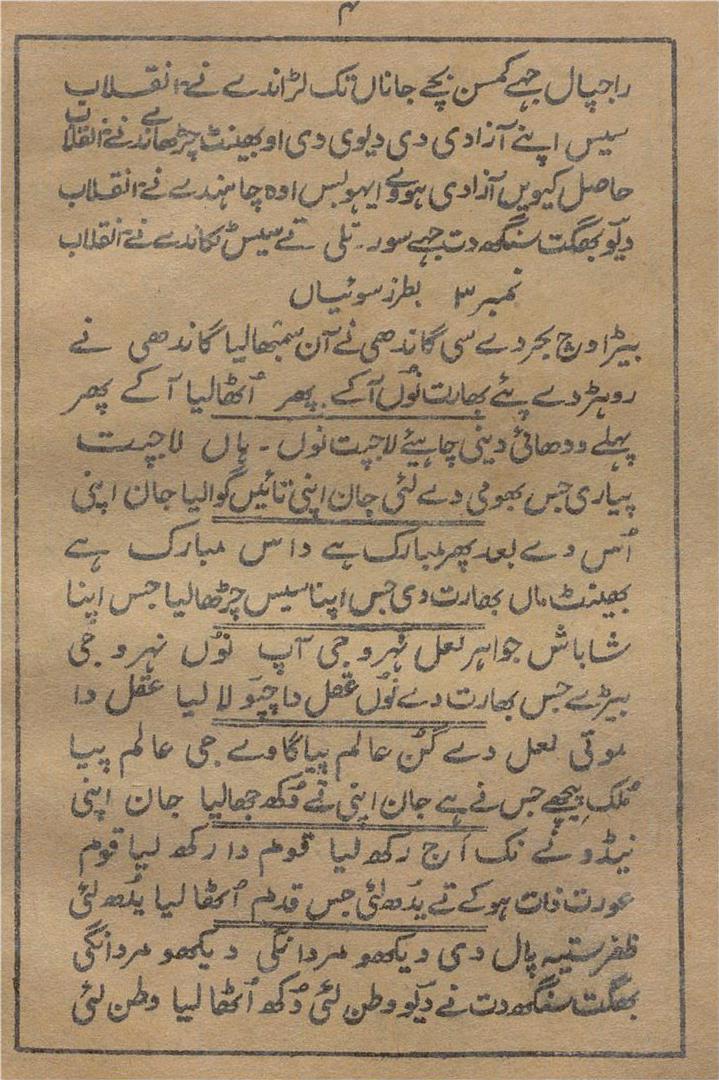 ۴
راجپال جہے کمسن بچے جاناں تک لڑاندے نے انقلاب
سیس اپنے آزادی دی دیوی دی او بھینٹ چڑھاندے نے انقلاب
حاصل کیویں آزادی ہووے ایہو بس اوہ چاہندے نے انقلاب
دیکو بھگت سنگھ دت جہے سور۔ تلی تے سیس ٹکاندے نے انقلاب
نمبر ۳ بطرز سوئیاں
بیڑا وچ بحر دے سی گاندھی نے آن سمبھالیا گاندھی نے
روہڑدے پئے بھارت نوں آکے پھر اٹھالیا آکے پھر
پہلے ودھائی دینی چاہیئے لاجپت نوں ۔ ہاں لاجپت
پیاری جس بھومی دے لئی جان اپنی تائیں گوالیا جان اپنی
اُس دے بعد پھر مبارک ہے داس مبارک ہے
بھینٹ ماں بھارت دی جس اپنا سیس چڑھالیا جس اپنا
شاباش جواہر لعل نہرو جی آپ نوں نہرو جی
بیڑے جس بھارت دے نوں عقل دا چپو لا لیا عقل دا
موتی لعل دے گن عالم پیا گاوے جی عالم پیا
ملک پیچھے جس نے ہے جان اپنی نے دکھ جھالیا جان اپنی
نیڈو نے نک اج رکھ لیا قوم دا رکھ لیا قوم
عورت ذات ہوکے تے یدھ لئی جس قدم اٹھا لیا یدھ لئی
ظفر ستیہ پال دی دیکھو مردانگی دیکھو مردانگی
بھگت سنگھ دت نے دیکو وطن لئی دکھ اٹھا لیا وطن لئی